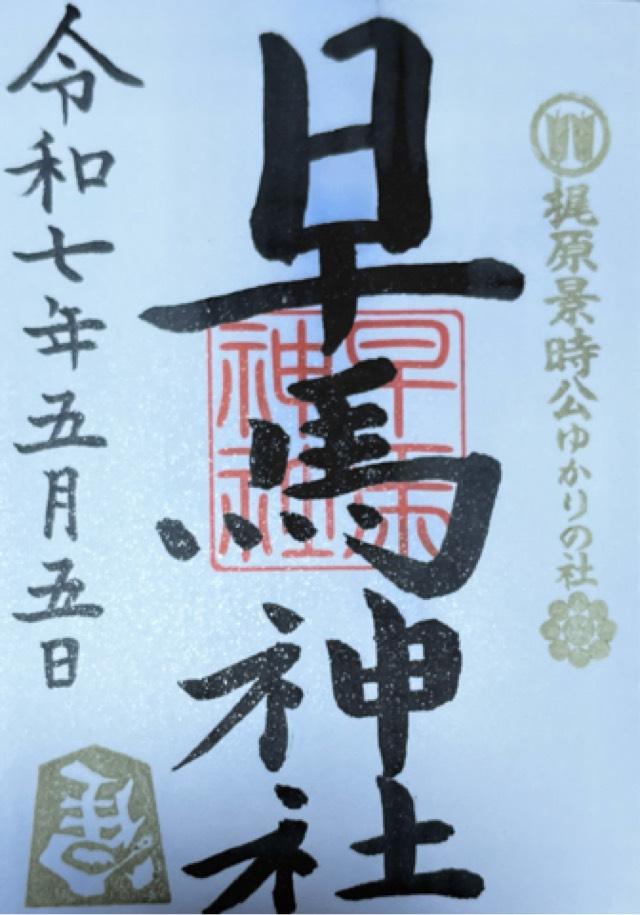 梶原景時公ゆかりの社
早馬神社
早馬神社
令和七年五月五日